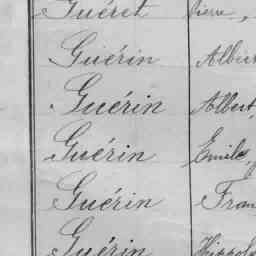 Guéret Pierre,
Guérin Albert
Guérin Albert,
Guérin Emile,
Guérin Fran
Guérin Hippol